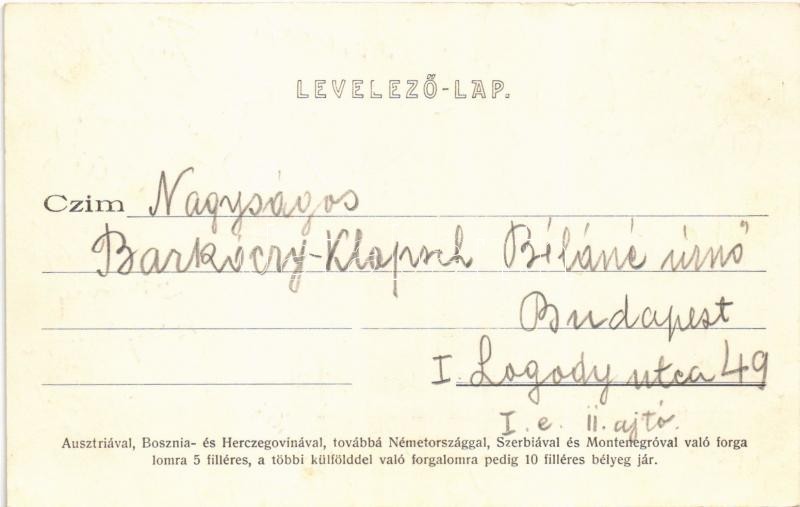 LEVELEZŐ-LAP.
Czim Nagyságos
Barkóczy-Klopsch Béláné úrnő
Budapest
I. Logody utca 49
I. e. II. ajtó.
Ausztriával, Bosznia- és Herczegovínával, továbbá Németországgal, Szerbiával és Montenegróval való forga
lomra 5 filléres, a többi külfölddel való forgalomra pedig 10 filléres bélyeg jár.